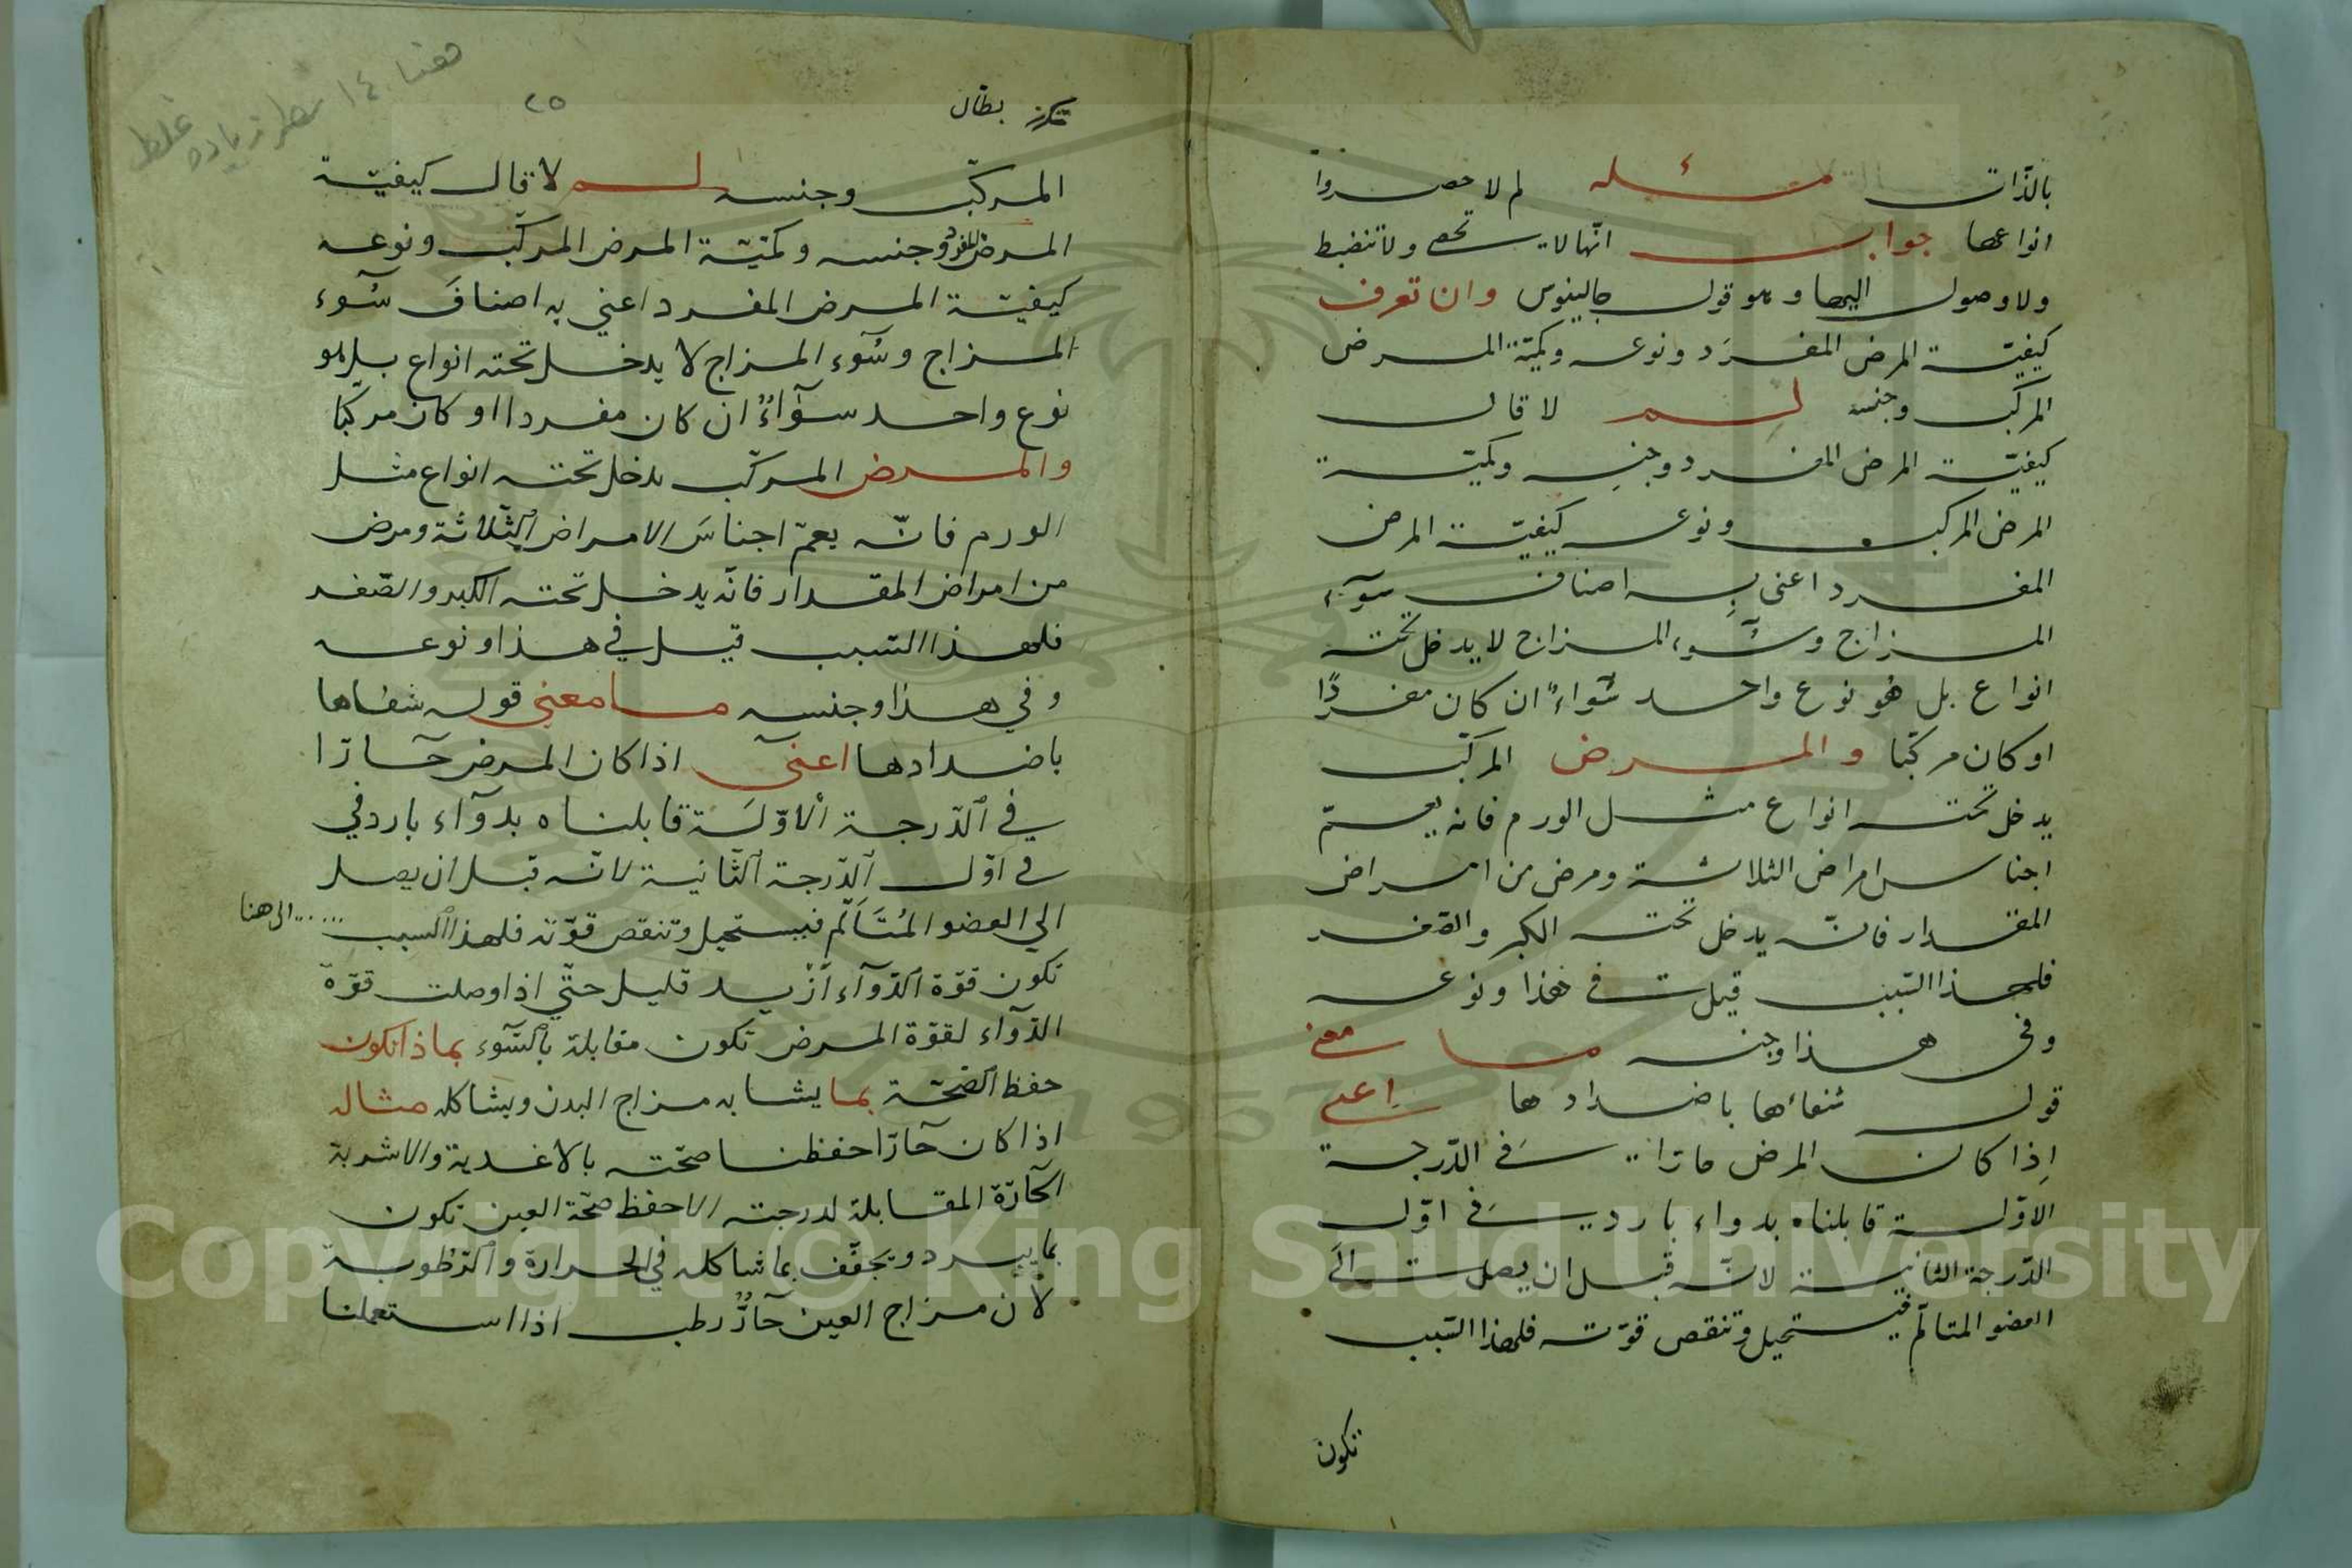 بالذّات مسئله لم لا حصروا
انواعها جواب انّها لا تحصى ولا تنضبط
ولا وصول اليها وهو قول جالينوس وان تعرف
كيفيّة المرض المفرَد ونوعه وكميّة المرض
المركّب وجنسه لِم لا قال
كيفيّة المرض المفرد وجنسِه وكميّة
المرض المركب ونوعه كيفيّة المرض
المفرد اعنى بِه اصناف سوٓء
المزاج وسُوٓء المزاج لا يدخل تحته
انواع بل هو نوع واحد سَواءً ان كان مفردًا
او كان مركبّا والمرض المركّب
يدخل تحته انواع مثل الورم فانه يعمّ
اجناس امراض الثلاثة ومرض من امراض
المقدار فانّه يدخل تحته الكبر والصّغر
فلهذا السّبب قيل فى هذا ونوعه
وفى هذا وجنسه ما معنى
قوله شفاءها باضدادها اعنى
اِذا كان المرض حارّا فى الدّرجة
الاوّلة قابلناه بدواء بارد فى اوّل
الدّرجة الثانية لانّه قبل ان يصل الى
العضو المتالّم فيستحيل وتنقص قوّته فلهذا السّبب
تكون
مكرر بطال
٢٥
هنا ١٤ سطر زياده غلط
المركّب وجنسه لم لا قال كيفيّة
المرض المفرد وجنسه وكميّة المرض المركّب ونوعه
كيفيّة المرض المفرد اعني به اصنافَ سُوٓء
المزاج وسُوٓء المزاج لا يدخل تحته انواع بل هو
نوع واحد سوٓاءٌ ان كان مفردا او كان مركبّا
والمرض المركّب يدخل تحته انواع مثل
الورم فانّه يعمّ اجناسَ الامراض الثّلاثة ومرض
من امراض المقدار فانّه يدخل تحته الكبر والصّغر
فلهذا السّبب قيل في هذا ونوعه
وفي هذا وجنسه ما معني قوله شفاها
باضدادها اعنى اذا كان المرض حارّا
في الدّرجة الاوّلَة قابلناه بدوٓاء بارد في
في اوّل الدّرجة الثّانية لانّه قبل ان يصل
الي العضو المُتَاَلّم فيستحيل وتنقص قوّته فلهذا السبب ..... الى هنا
تكون قوّة الدّوٓاء اَزْيد قليل حتّي اذا وصلت قوّة
الدّوٓاء لقوّة المرض تكون مقابلة بالسّوٓء بماذا تكون
حفظ الصّحّة بما يشابه مزاج البدن ويشاكله مثاله
اذا كان حارّا حفظنا صحّته بالاغدية والاشربة
الحارّة المقابلة لدرجته الا حفظ صحّة العين تكون
بما يبرد ويجفّف بما شاكله في الحرارة والرّطوبة
لان مزاج العين حارٌّ رطب اذا استعملنا
Copyright © King Saud University
1957